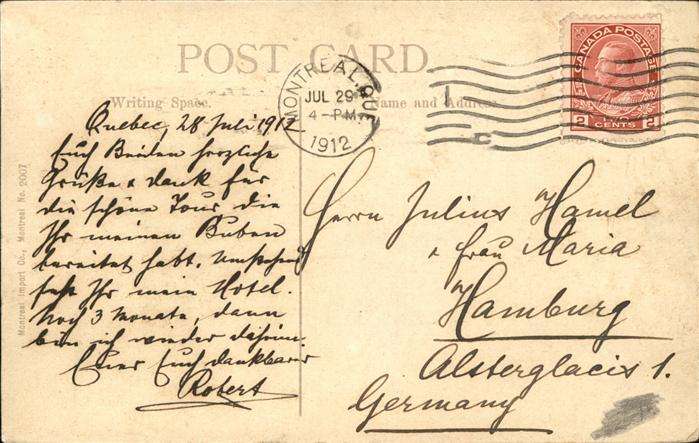 POST CARD.
Writing Space.
Name and Address
MONTREAL, QUE.
JUL 29
4 - PM
1912
CANADA POSTAGE
2 TWO CENTS 2
Quebec, 28 Juli 1912
Euch Beiden herzliche
Grüße & Dank für
die schöne Tour die
Ihr meinen Buben
bereitet habt. Umstehend
seht Ihr mein Hotel.
Noch 3 Monate, dann
bin ich wieder daheim.
Euer Euch dankbarer
Robert
Herrn Julius Hamel
& Frau Maria
Hamburg
Alsterglacis 1.
Germany
Montreal Import Co., Montreal No. 2007